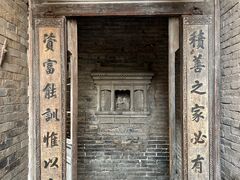 積善之家必有
資富能訓惟以